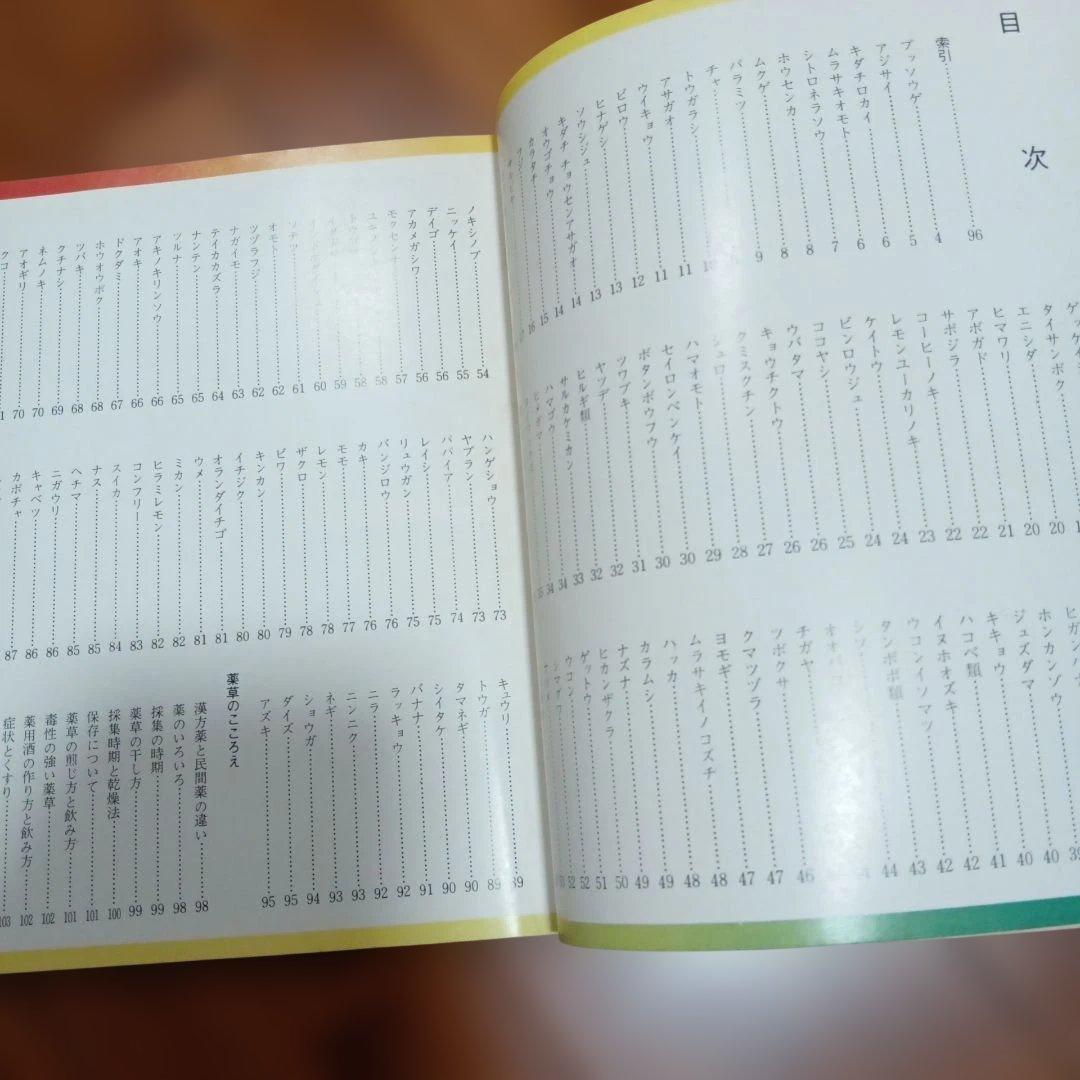 目次
索引 96
ブッソウゲ 4
アジサイ 5
キダチロカイ 6
ムラサキオモト 6
シトロネラソウ 7
ホウセンカ 8
ムクゲ 8
バラミツ 9
チャ
トウガラシ
アサガオ 11
ウイキョウ 11
ビロウ 12
ヒナゲシ 13
ソウシジュ 13
キダチ チョウセンアサガオ 14
オウゴチョウ 14
カラタチ 15
16
タイサンボク 20
エニシダ 20
ヒマワリ 21
アボガド 22
サボジラ 22
コーヒーノキ 23
レモンユーカリノキ 24
ケイトウ 24
ビンロウジュ 25
ココヤシ 26
ウバタマ 26
キョウチクトウ 27
クミスクチン 28
シュロ 29
ハマオモト 30
セイロンベンケイ 30
ボタンボウフウ 31
ツワブキ 32
ヤツデ 32
ヒルギ類 33
サルカケミカン 34
ハマゴウ 34
ホンカンゾウ 40
ジュズダマ 40
キキョウ 41
ハコベ類 42
イヌホオズキ 42
ウコンイソマツ 43
タンポポ類 44
シソ
オオバコ
チガヤ 46
ツボクサ 47
クマツヅラ 47
ヨモギ 48
ムラサキイノコズチ 48
ハッカ 49
カラムシ 49
ナズナ 50
ヒカンザクラ 51
ゲットウ 52
ウコン 52
ノキシノブ 54
ニッケイ 55
デイゴ 56
アカメガシワ 56
モクセンナ 57
58
58
59
60
ソテツ 61
オモト 62
ツヅラフジ 62
ナガイモ 63
テイカカズラ 64
ナンテン 65
ツルナ 65
アキノキリンソウ 66
アオキ 66
ドクダミ 67
ホウオウボク 68
ツバキ 68
クチナシ 69
ネムノキ 70
アオギリ 70
クコ
ハンゲショウ 73
ヤブラン 73
パパイア 74
レイシ 75
リュウガン 75
バンジロウ 76
カキ 76
モモ 77
レモン 78
ザクロ 78
ビワ 79
キンカン 80
イチジク 80
オランダイチゴ 81
ウメ 81
ミカン 82
ヒラミレモン 82
コンフリー 83
スイカ 84
ナス 85
ヘチマ 85
ニガウリ 86
キャベツ 86
カボチャ 87
キュウリ 89
トウガ 89
タマネギ 90
シイタケ 90
バナナ 91
ラッキョウ 92
ニラ 92
ニンニク 93
ネギ 93
ショウガ 94
ダイズ 95
アズキ 95
薬草のこころえ
漢方薬と民間薬の違い 98
薬のいろいろ 98
採集の時期 99
薬草の干し方 99
採集時期と乾燥法 100
保存について 101
薬草の煎じ方と飲み方 101
毒性の強い薬草 102
薬用酒の作り方と飲み方 102
症状とくすり 103